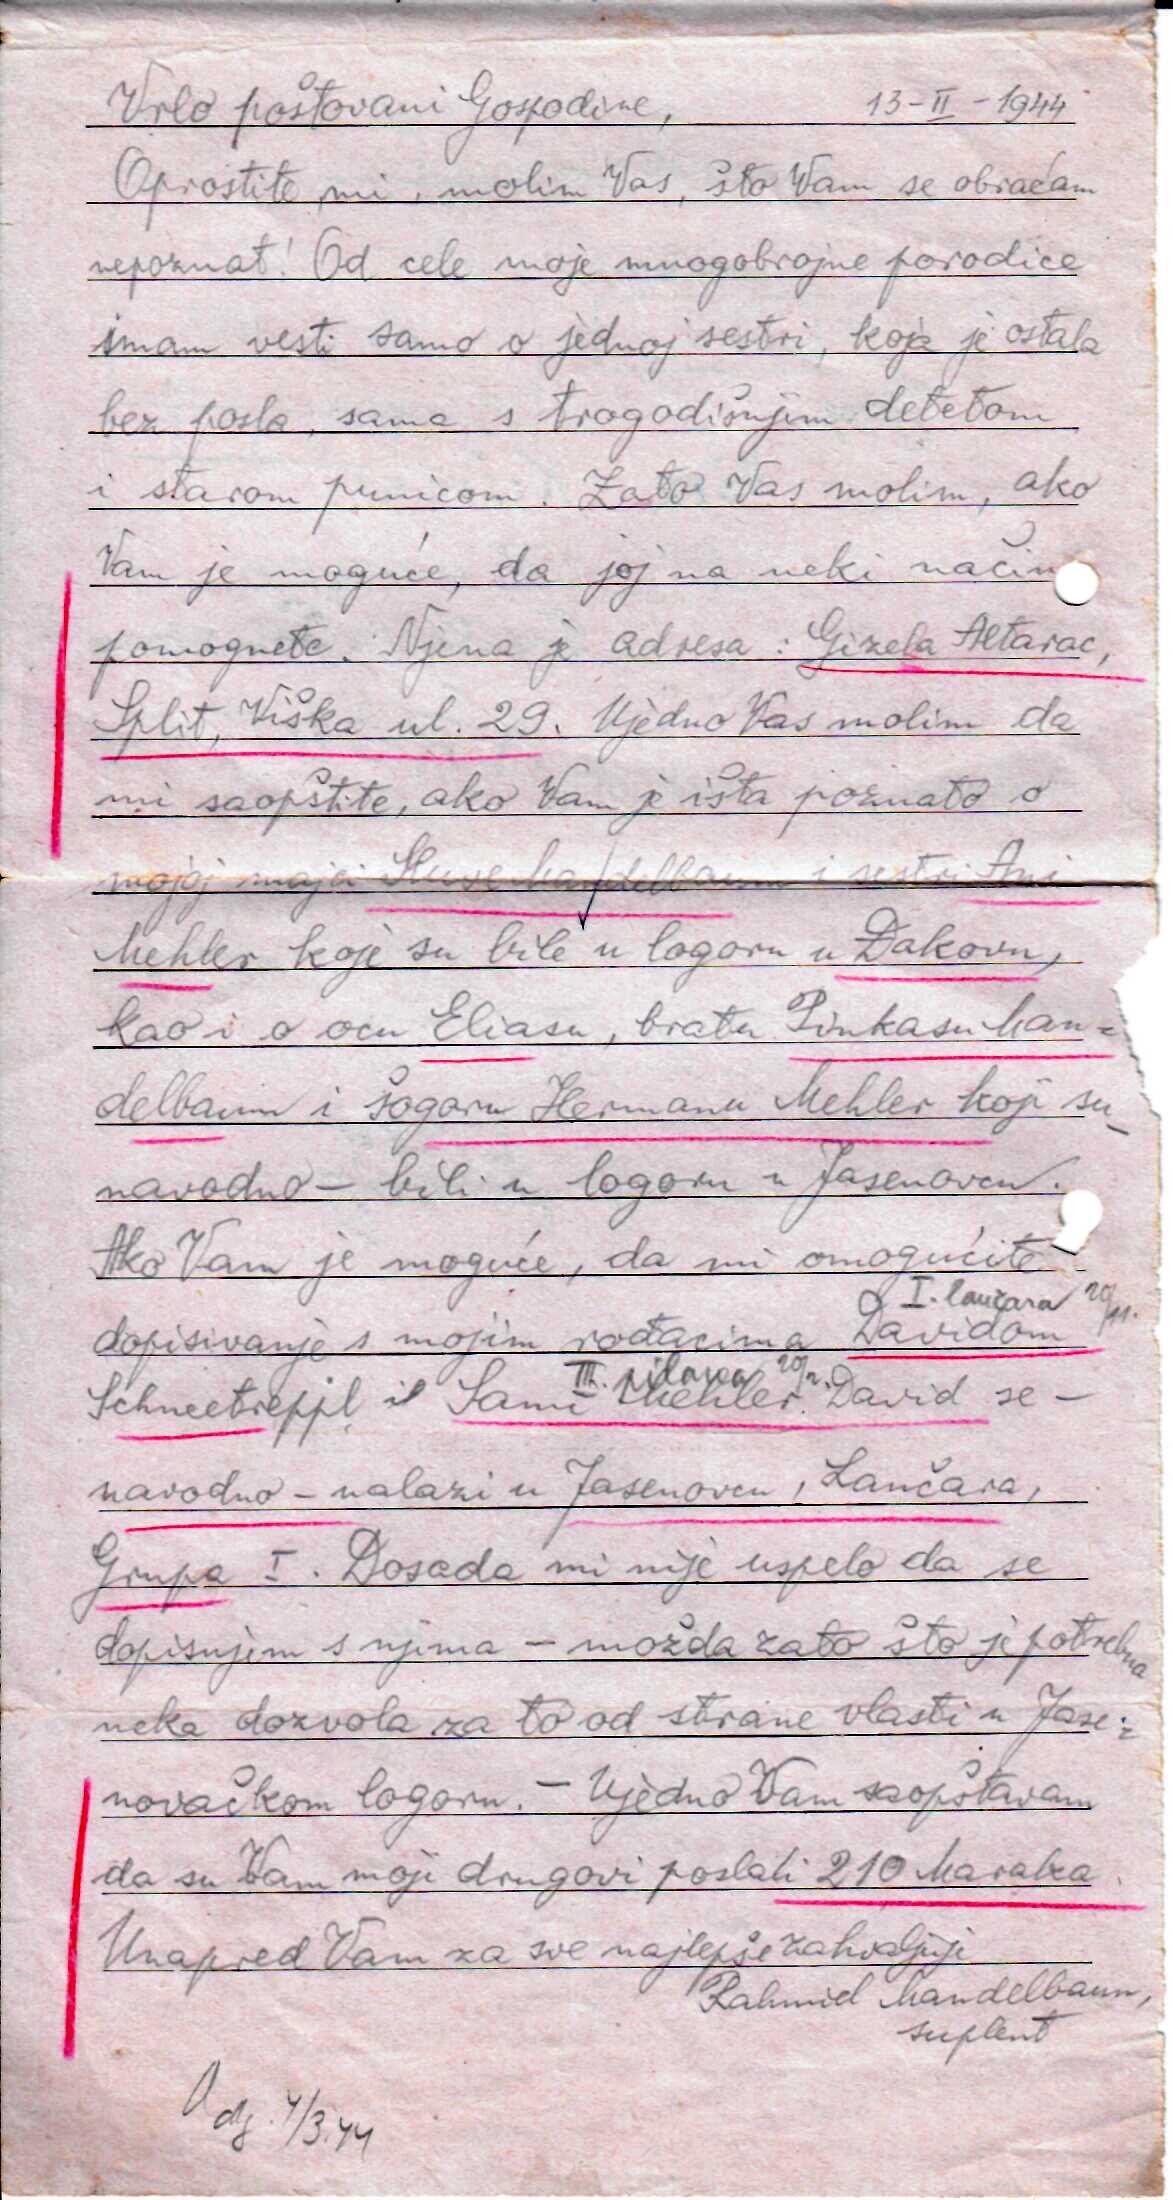 Vrlo poštovani Gospodine, 13-II-1944
Oprostite mi, molim Vas, što Vam se obraćam
nepoznat! Od cele moje mnogobrojne porodice
imam vesti samo o jednoj sestri, koja je ostala
bez posla, sama s trogodišnjim detetom
i starom punicom. Zato Vas molim, ako
Vam je moguće, da joj na neki način
pomognete. Njena je adresa: Gizela Altarac,
Split, Viška ul. 29. Ujedno Vas molim da
mi saopštite, ako Vam je išta poznato o
mojoj majci Mandelbaum i sestri Ani
Mehler koje su bile u logoru u Đakovu,
kao i o ocu Eliasu, bratu Pinkasu Man=
delbaum i šogoru Hermanu Mehler koji su_
navodno - bili u logoru u Jasenovcu.
Ako Vam je moguće, da mi omogućite
I. lančara 20/11.
dopisivanje s mojim rođacima Davidom
III. pilana 20/2.
Schneetreppl il Sami Mehler. David se -
navodno - nalazi u Jasenovcu, Lančara,
Grupa I. Dosada mi nije uspelo da se
dopisujem s njima - možda zato što je potrebna
neka dozvola za to od strane vlasti u Jase=
novačkom logoru. - Ujedno Vam saopštavam
da su Vam moji drugovi poslali 210 Maraka.
Unapred Vam za sve najlepše zahvaljuje
Rahmiel Mandelbaum,
suplent
Odg. 4/3.44